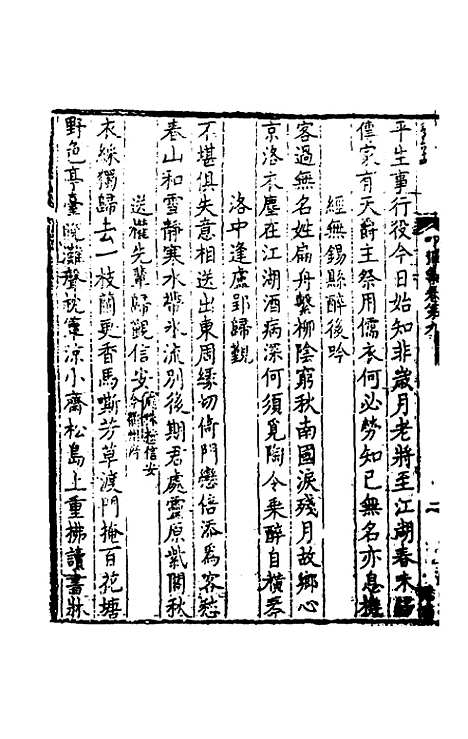 平生事行役今日始知非歲月老將至江湖春未歸
儒家有天爵主祭用儒衣何必勞知己無名亦息機
經無錫縣醉後吟
客過無名姓扁舟繫柳陰窮秋南國淚殘月故鄉心
京洛衣塵在江湖酒病深何須覓陶令乘醉自橫琴
洛中逢盧郢歸覲
不堪俱失意相送出東周緣切倚門戀倍添爲客愁
春山和雪靜寒水帶氷流別後期君處靈原紫閣秋
送權先輩歸覲信安
衣綵獨歸去一枝蘭更香馬嘶芳草渡門掩百花塘
野色亭臺晚灘聲枕簟凉小齋松島上重拂讀書牀
二